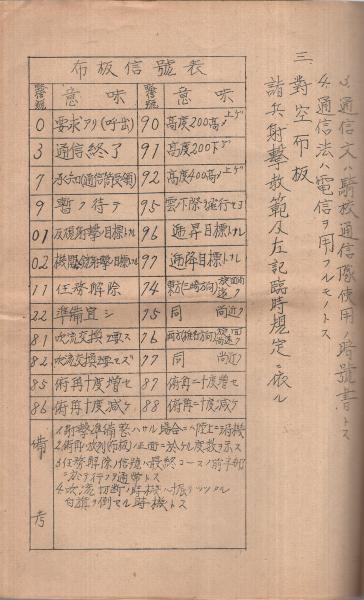 3.通信文ハ騎校通信隊使用ノ暗號書トス
4.通信法ハ電信ヲ用フルモノトス
三.對空布板
諸兵射撃教範及左記臨時規定ニ依ル
布板信號表
意味 意味
0 要求アリ(呼出) 90 高度200高ノ上ゲ
3 通信終了 91 高度200下ゲ
7 承知(通信筒受領) 92 高度400高ノ上ゲ
9 暫ク待テ 95 雲下際ヲ飛行セヨ
01 反覘射撃目標トナル 96 逓昇目標トナル
02 目標トナル 97 逓降目標トナル
11 任務解除 74
22 準備宜シ 75 同 尚近ク
81 吹流交換ヲ要ス 76
82 吹流交換ヲ要セズ 77 同 尚近ク
85 術再十度増セ 87 術再二十度増セ
86 術再十度減ケ 88 術再二十度減ケ
備考
1.射撃準備整ハサル場合ニハ陸上ニ
2.術即放列(布板)ノ正面ニ於ケル度数ヲ示ス
3.任務解除ノ信號ハ最終コースノ前半部
ニ於テ行フヲ通常トス
4.吹流切断ノ時機ハ振リツツアル
白旗ヲ倒セル時機トス